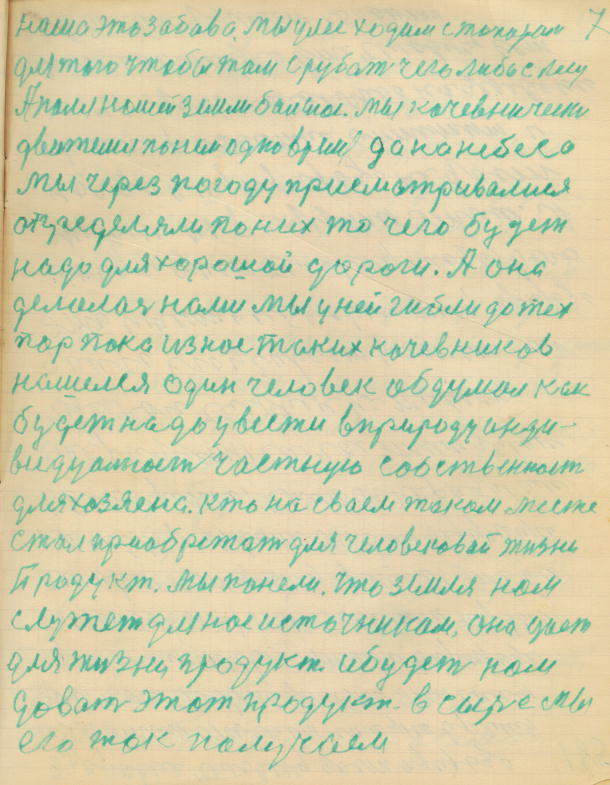 наша это забава, мы уже ходим с топорам 7
для того чтобы там срубат чего либо с лесу
А поля нашей земли большие. мы кочевнически
движемся по ней одновремё да на небеса
мы через погоду присматривалися
определяли по них то чего будет
надо для хорошой дороги. А она
делалас нами мы у ней гибли до тех
пор пока из нас таких кочевников
нашелся один человек обдумал как
будет надо увести в природу инди-
видуалност частную собственност
для хозяена. Кто на сваем таком месте
стал приобретат для человековай жизни
Продукт. Мы понели, что земля нам
служет для нас источникам, она дает
для жизни продукт и будет нам
Доват этот продукт. в сыре мы
его так получаем